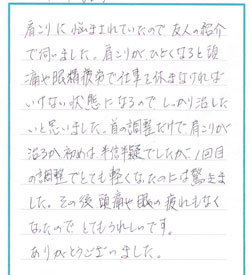 肩こりに悩まされていたので友人の紹介
で伺いました。肩こりがひどくなると頭
痛や眼精疲労で仕事を休まなければ
いけない状態になるのでしっかり治した
いと思いました。首の調整だけで肩こりが
治るか初めは半信半疑でしたが、1回目
の調整でとても軽くなったのには驚きま
した。その後頭痛や眼の疲れもなく
なったのでとてもうれしいです。
ありがとうございました。